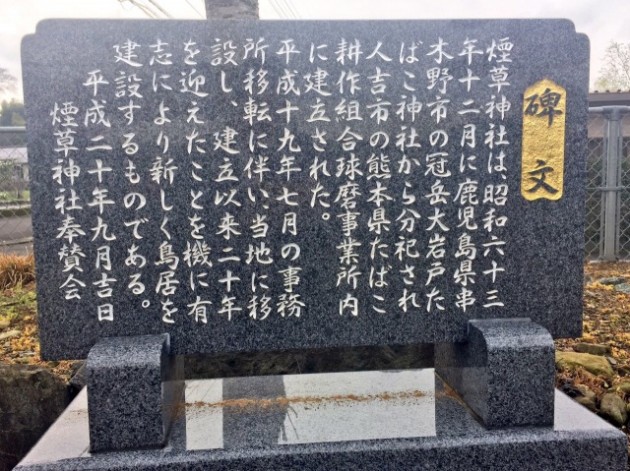 碑文
煙草神社は、昭和六十三
年十二月に鹿児島県串
木野市の冠岳大岩戸た
ばこ神社から分祀され
人吉市の熊本県たばこ
耕作組合球磨事業所内
に建立された。
平成十九年七月の事務
所移転に伴い、当地に移
設し、建立以来二十年
を迎えたことを機に有
志により新しく鳥居を
建設するものである。
平成二十年九月吉日
煙草神社奉賛会